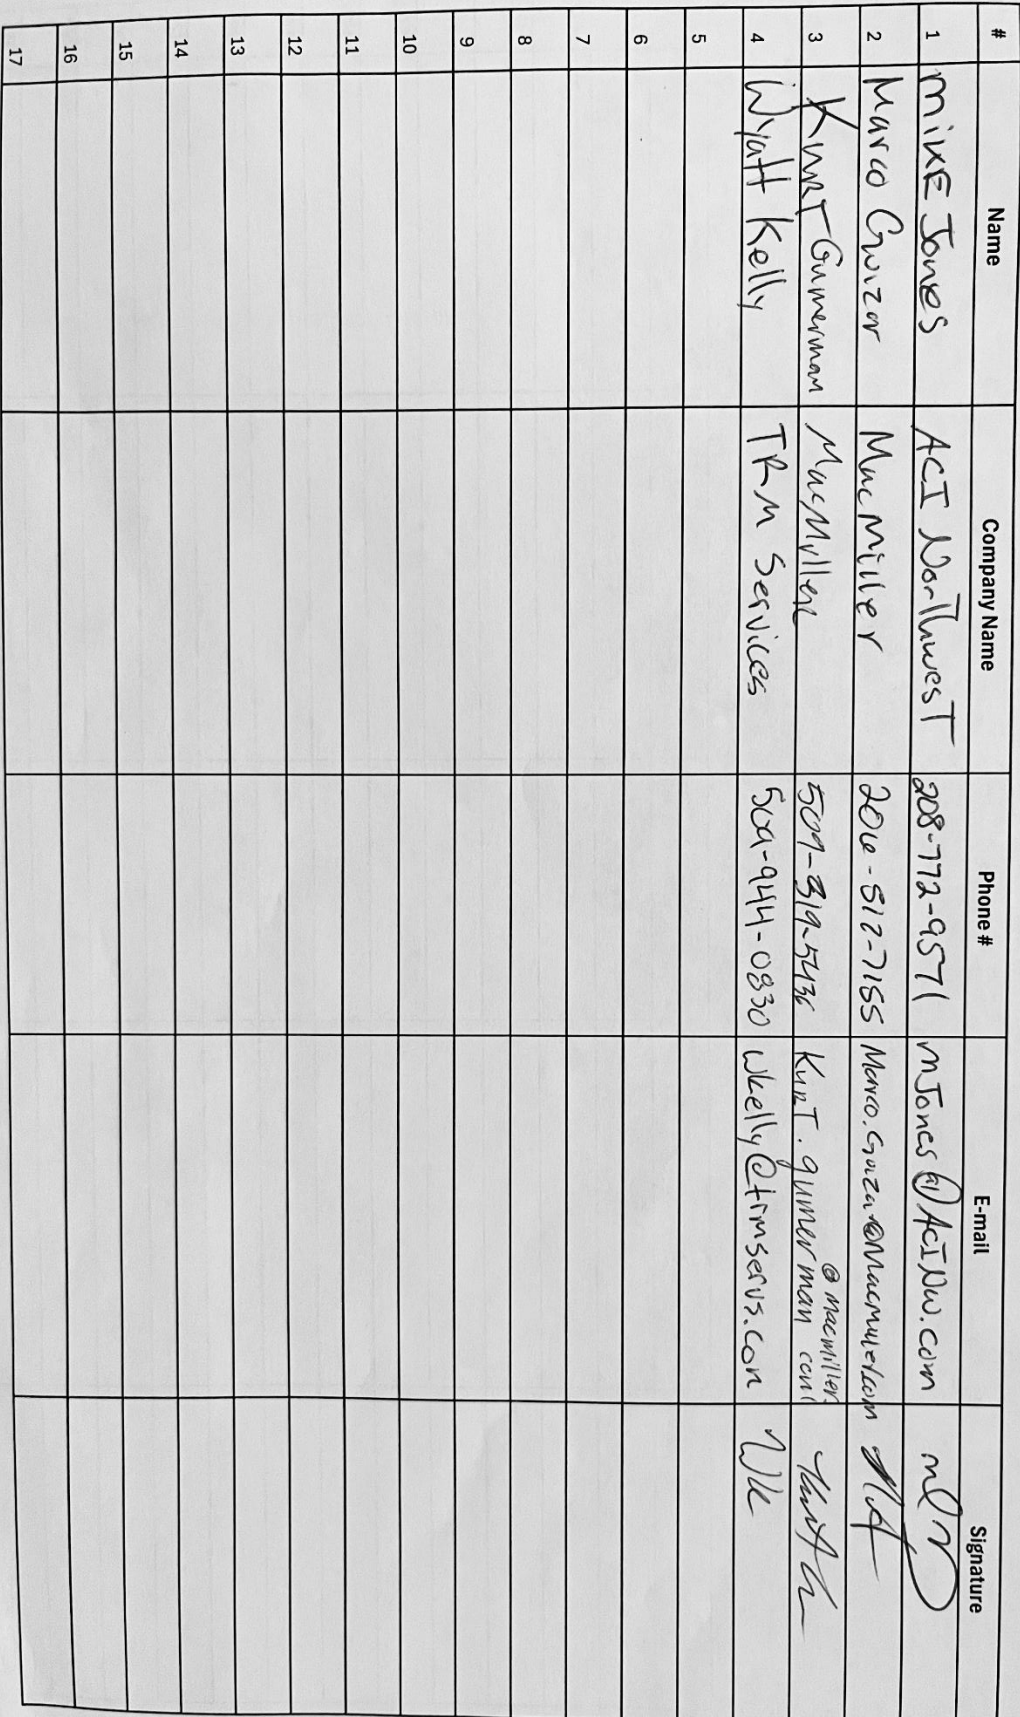 # Name Company Name Phone # E-mail Signature
1 MIKE Jones ACI NorThwesT 208-772-9571 mJones@ACINW.com
2 Marco Guizar MacMiller 206-512-7155
3 KURT Gumerman 509-319-5436 KURT.gumerman@macmiller.com
4 Wyatt Kelly TRM Services 509-944-0830 wkelly@trmservs.com
5
6
7
8
9
10
11
12
13
14
15
16
17